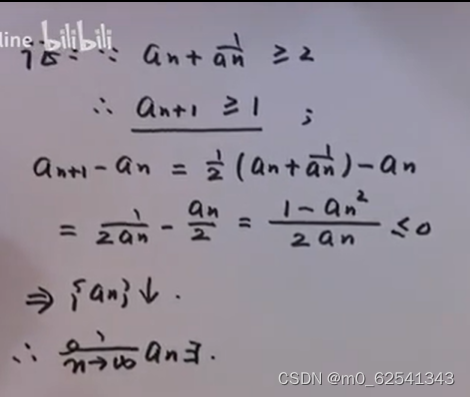 line bilibili
证: ∵ an + 1/an ≥ 2
∴ an+1 ≥ 1 ;
an+1 - an = 1/2 (an + 1/an) - an
= 1/2an - an/2 = 1-an²/2an ≤ 0
⇒ {an}↓.
∴ lim n→∞ an∃.
CSDN @m0_62541343